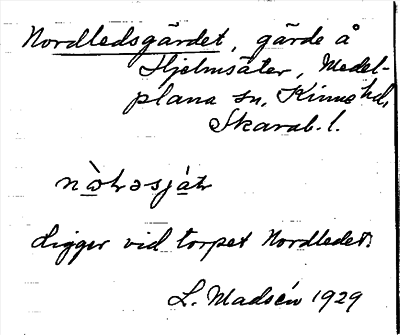 Nordledsgärdet, gärde å
Hjelmsäter, Medel-
plana sn, Kinne hd,
Skarab. l.
Ligger vid torpet Nordledet.
L. Madsén 1929